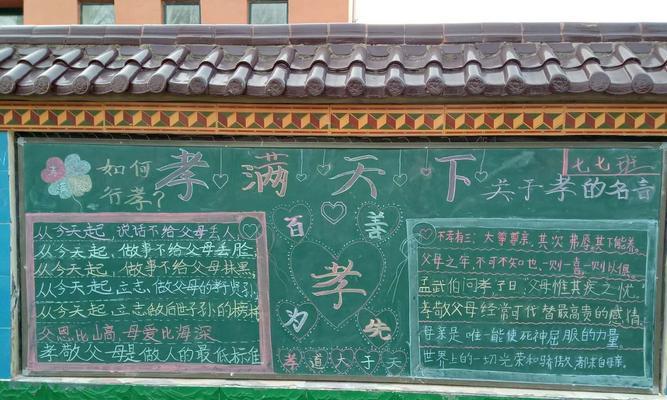 孝满天下
七七班
如何
行孝?
从今天起,说话不给父母丢人,
从今天起,做事不给父母丢脸,
从今天起,做事不给父母抹黑,
从今天起,立志做父母的好儿孙,
从今天起,立志做后世子孙的榜样
父恩比山高,母爱比海深
孝敬父母是做人的最低标准
百善
孝
为先
孝道大于天
关于孝的名言
不孝有三:大孝尊亲,其次弗辱,其下能养。
父母之年,不可不知也,一则一喜,一则以惧。
孟武伯问孝子曰:父母惟其疾之忧。
孝敬父母经常可代替最高贵的感情
母亲是唯一能使死神屈服的力量
世界上的一切光荣和骄傲都来自母亲。